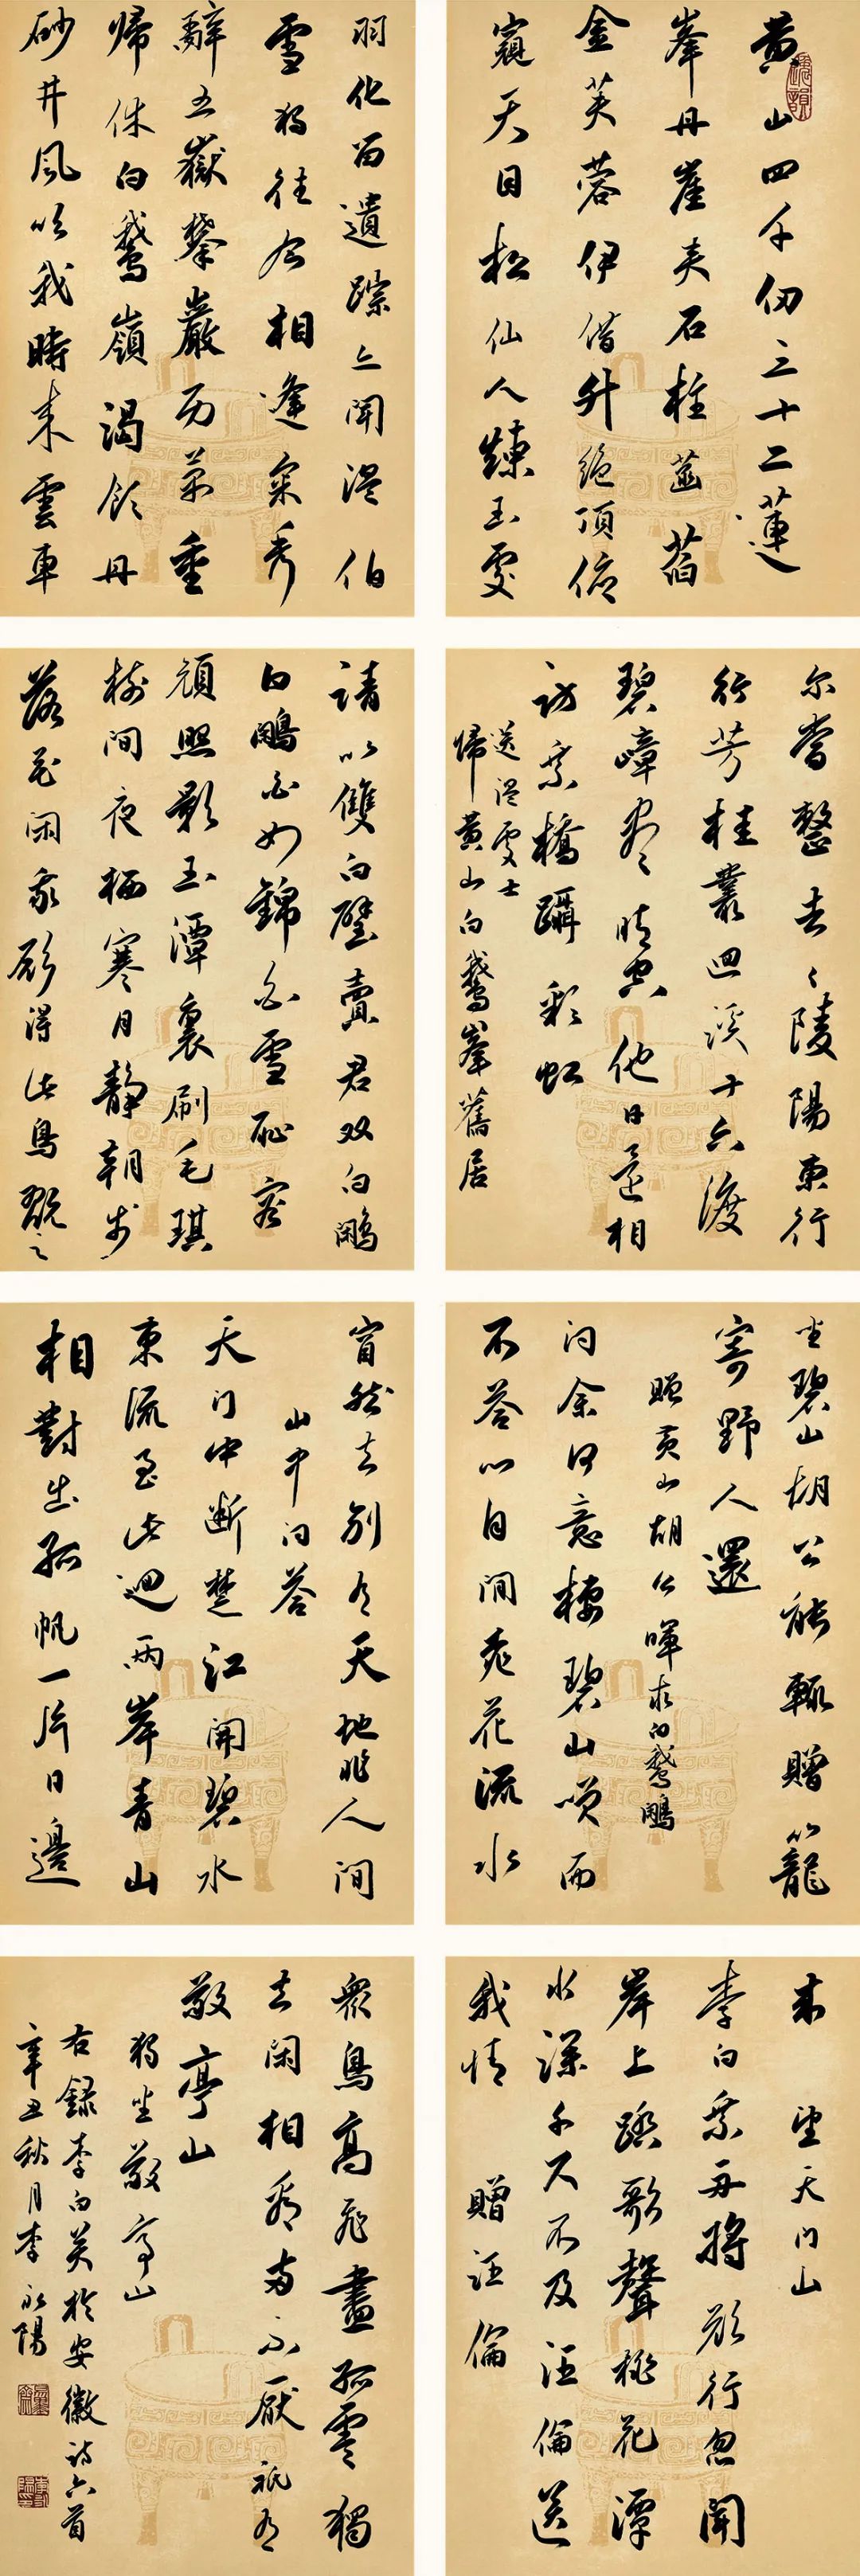 黄山四千仞三十二蓮
峯丹崖夾石柱菡萏
金芙蓉伊借升絶頂俯
窺天目松仙人煉玉處
羽化留遺踪亦聞温伯
雪獨往今相逢采秀
辭五嶽攀巖歷萬重
帰休白鵞嶺渴飲丹
砂井風吹我時来雲車
尔當整去々陵陽東行
行芳桂叢迴溪十六渡
碧嶂盡晴空他日還相
訪乘橋躡彩虹
送温處士
帰黄山白鵞峯舊居
請以雙白璧賣君双白鷴
白鷴白如錦白雪恥容
顔照影玉潭裏刷毛琪
樹間夜栖寒月静朝步
落花閑我願得此鳥翫之
坐碧山胡公能輒贈籠
寄野人還
贈黄山胡公暉求白鵞鷴
问余何意棲碧山笑而
不答心自閒桃花流水
窅然去别有天地非人间
山中问答
天门中断楚江開碧水
東流至此迴兩岸青山
相對出孤帆一片日邊
来 望天门山
李白乘舟將欲行忽聞
岸上踏歌聲桃花潭
水深千尺不及汪倫送
我情 贈汪倫
衆鳥高飛盡孤雲獨
去閑相看两不厭祗有
敬亭山
獨坐敬亭山
右録李白关於安徽詩六首
辛丑秋月李永陽